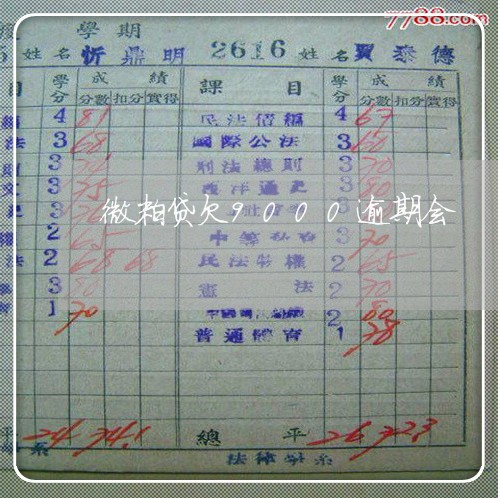 7788.com
學期
姓名 忻鼎明 2616 姓名 賈泰德
目 學分 成績 課目 學分 成績
分數 扣分 實得 分數 扣分 實得
4 81 民法債編 4 67
法 3 68 國際公法 3 60
3 刑法總則 3 70
3 75 西洋通史 3 80
3
微粒贷欠9000逾期会
2 65 3 70
法 2 68 68 民法物權 2 65
3 80 憲法 2 70
1 70 2 80
普通體育 1 78
平 24 74.1 總平 26 72.3
系 法律學系